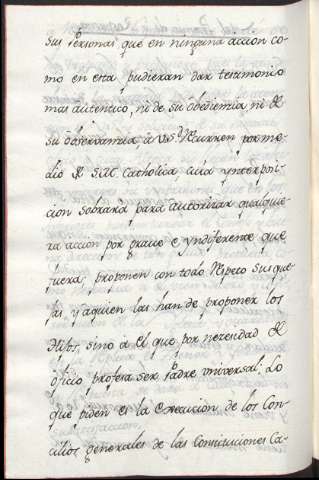 sus Personas que en ninguna accion co-
mo en esta pudieran dar testimonio
mas autentico, ni de su obediencia ni de
su observancia, a V. Sd. Recurren por me-
dio de S.M. Catholica, cuia ynterposi-
cion sobrara para autorizar qualquie-
ra accion por graue e yndiferente que
fuera, proponen con todo Respeto sus que-
jas, y a quien las han de proponer los
Hijos, sino a el que por nezesidad de
oficio profesa ser Padre vniversal. Lo
que piden es la execusion de los Con-
cilios generales de las Constituciones Ca-